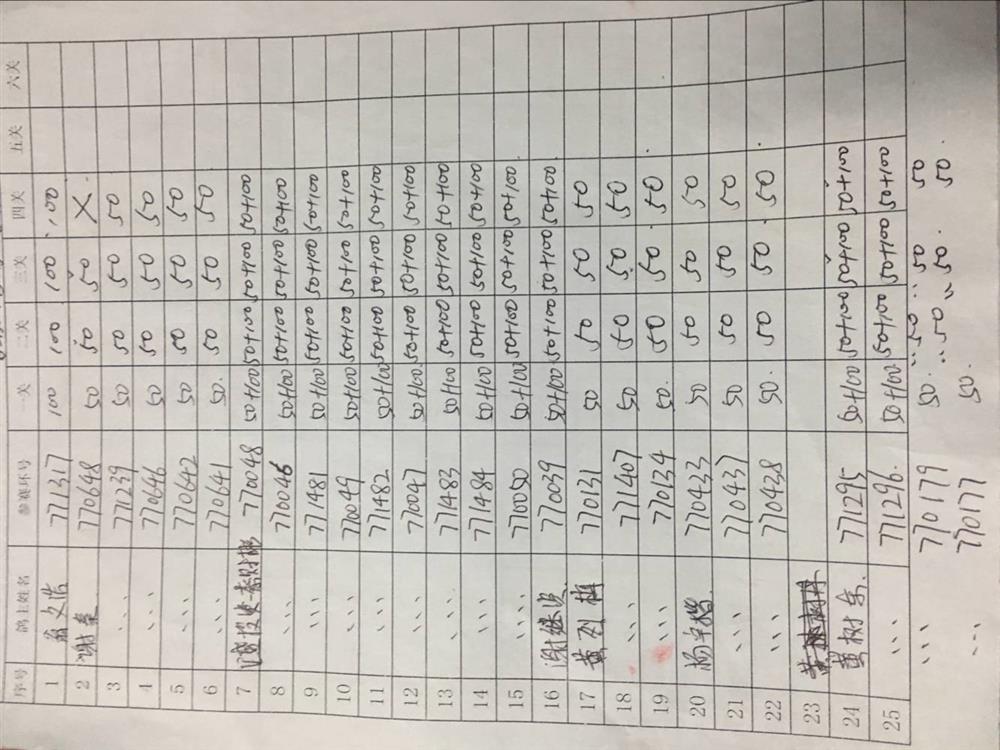 序号 鸽主姓名 参赛环号 一关 二关 三关 四关 五关 六关
1 翁文浩 771317 100 100 100 100
2 谢秉 770648 50 50 50 X
3 、、、 771239 50 50 50 50
4 、、、 770646 50 50 50 50
5 、、、 770642 50 50 50 50
6 、、、 770641 50. 50 50 50
7 770048 50+100 50+100 50+100 50+100
8 、、、 770046 50+100 50+100 50+100 50+100
9 、、、 771481 50+100 50+100 50+100 50+100
10 、、、 770049 50+100 50+100 50+100 50+100
11 、、、 771482 50+100 50+100 50+100 50+100
12 、、、 770047 50+100 50+100 50+100 50+100
13 、、、 771483 50+100 50+100 50+100 50+100
14 、、、 771484 50+100 50+100 50+100 50+100
15 、、、 770050 50+100 50+100 50+100 50+100
16 谢继 770039 50+100 50+100 50+100 50+100
17 黄列植 770131 50 50 50 50
18 、、、 771407 50 50 50 50
19 、、、 770134 50. 50 50 50
20 杨 770433 50 50 50 50
21 、、、 770437 50 50 50 50
22 、、、 770438 50. 50 50 50
23
24 黄树东. 771295 50+100 50+100 50+100 50+100
25 、、、 771296. 50+100 50+100 50+100 50+100
、、、 770179 50. 50 50 50
、、、 770177 50. 50 50 50